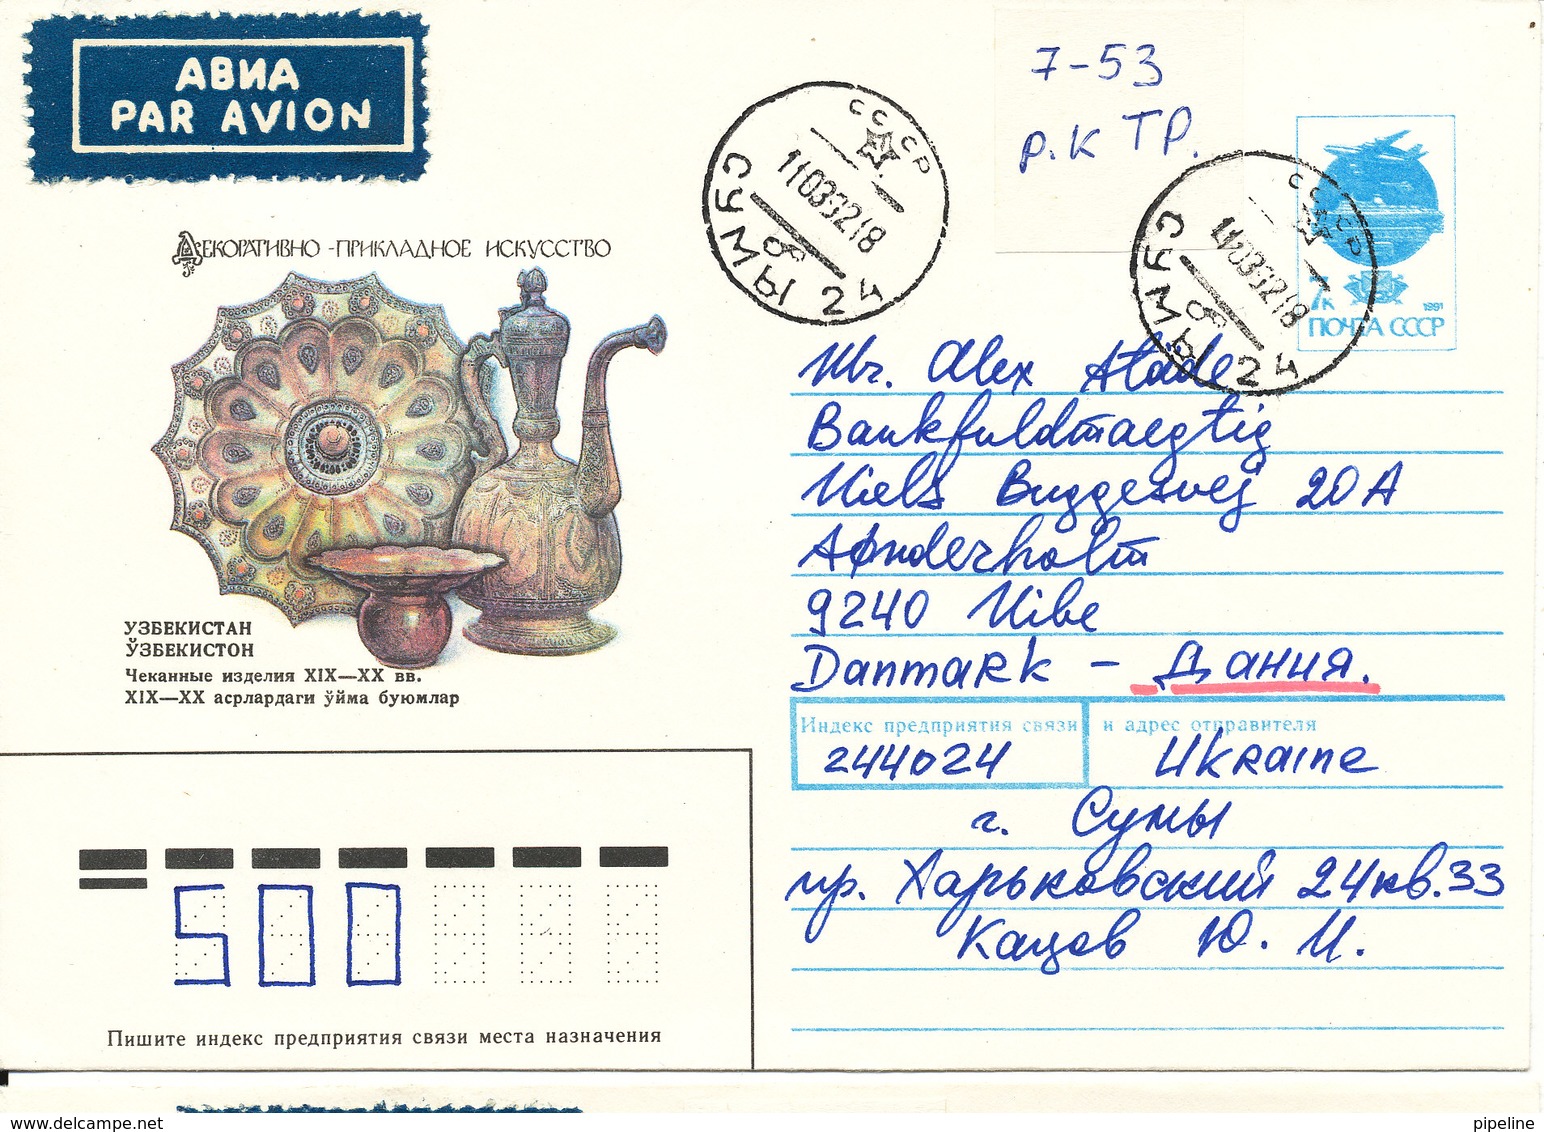 АВИА
PAR AVION
7-53
р.к ТР.
СССР
11039218
СУМЫ 24
8
СССР
11039218
СУМЫ 24
8
7к
1991
ПОЧТА СССР
ДЕКОРАТИВНО-ПРИКЛАДНОЕ ИСКУССТВО
УЗБЕКИСТАН
ЎЗБЕКИСТОН
Чеканные изделия XIX—XX вв.
XIX—XX асрлардаги ўйма буюмлар
Mr. Alex
Bankfuldmaegtig
Niels Buggesvej 20 A
9240 Nibe
Danmark - Дания.
Индекс предприятия связи и адрес отправителя
244024 Ukraine
г. Сумы
пр. Харьковский 24 кв. 33
Кацов Ю. И.
500
Пишите индекс предприятия связи места назначения
www.delcampe.net
pipeline